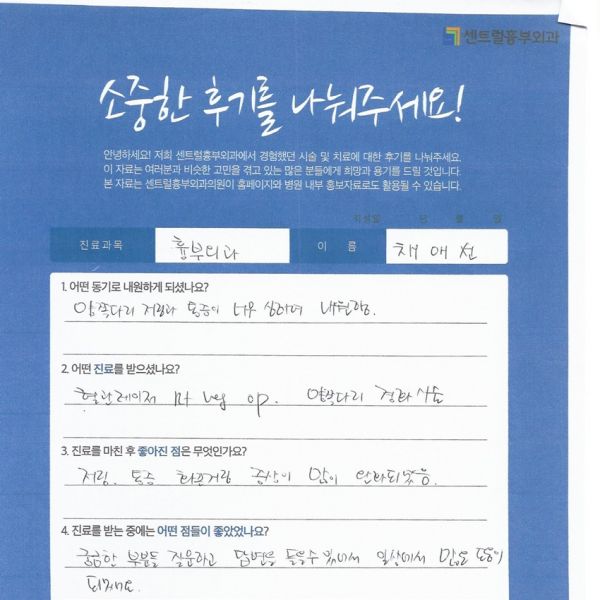 센트럴흉부외과
소중한 후기를 나눠주세요!
안녕하세요! 저희 센트럴흉부외과에서 경험했던 시술 및 치료에 대한 후기를 나눠주세요.
이 자료는 여러분과 비슷한 고민을 겪고 있는 많은 분들에게 희망과 용기를 드릴 것입니다.
본 자료는 센트럴흉부외과의원이 홈페이지와 병원 내부 홍보자료로도 활용될 수 있습니다.
작성일 년 월 일
진료과목 흉부외과 이 름 채애선
1. 어떤 동기로 내원하게 되셨나요?
양쪽다리 저림과 통증이 너무 심하여 내원함.
2. 어떤 진료를 받으셨나요?
혈관레이저 leg op. 양쪽다리 정맥
3. 진료를 마친 후 좋아진 점은 무엇인가요?
저림. 통증 화끈거림 증상이 많이 완화되었음.
4. 진료를 받는 중에는 어떤 점들이 좋았었나요?
궁금한 부분들 질문하고 답변을 들을수 있어서 일상에서 많은 도움이
되네요.